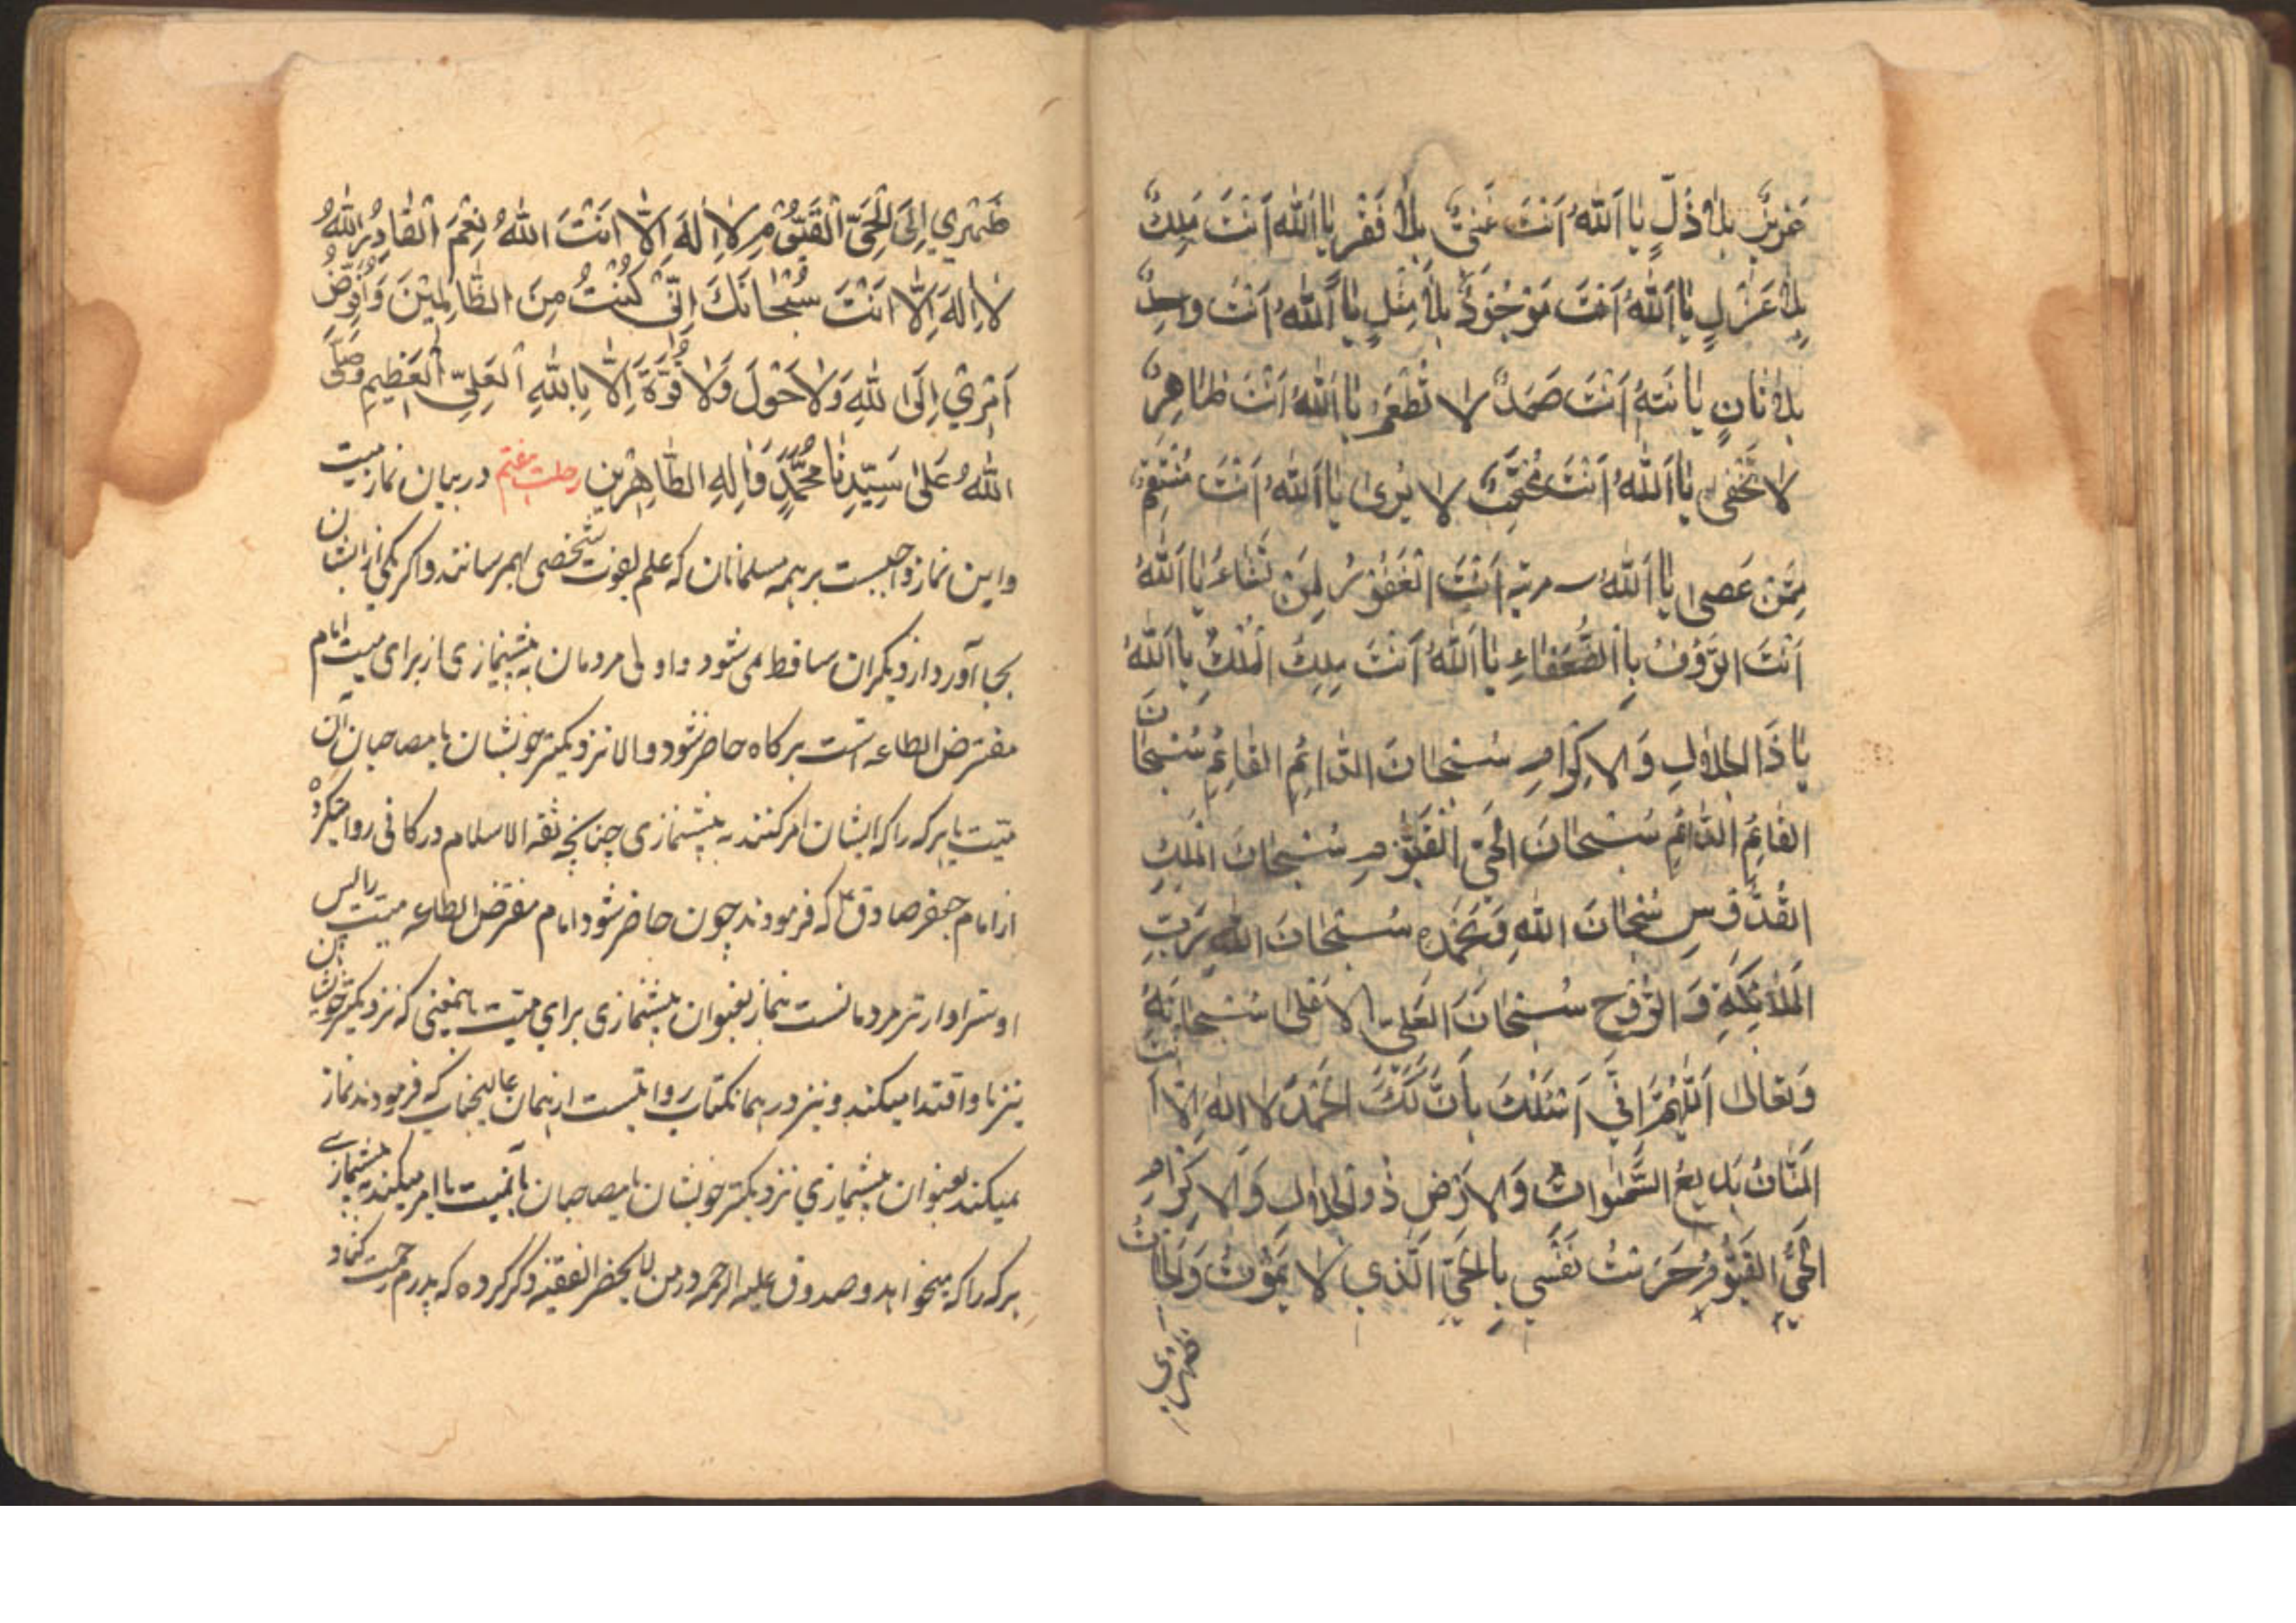 عَزِيزٌ بِلاٰ ذُلٍّ يٰا اَللّٰهُ اَنْتَ غَنِيٌّ بِلاٰ فَقْرٍ يٰا اَللّٰهُ اَنْتَ مَلِكٌ
بِلاٰ عَزْلٍ يٰا اَللّٰهُ اَنْتَ مَوْجُودٌ بِلاٰ مِثْلٍ يٰا اَللّٰهُ اَنْتَ وٰحِدٌ
بِلاٰ ثٰانٍ يٰا اَللّٰهُ اَنْتَ صَمَدٌ لا تُطْعَمُ يٰا اَللّٰهُ اَنْتَ ظٰاهِرٌ
لا تَخْفٰى يٰا اَللّٰهُ اَنْتَ مُحْتَجِبٌ لا يُرىٰ يٰا اَللّٰهُ اَنْتَ مُنْتَقِمٌ
مِمَّنْ عَصىٰ يٰا اَللّٰهُ سه مرتبه اَنْتَ الْغَفُورُ لِمَنْ تَشٰاءُ يٰا اَللّٰهُ
اَنْتَ الرَّؤُفُ بِالضُّعَفٰاءِ يٰا اَللّٰهُ اَنْتَ مٰلِكُ الْمُلْكِ يٰا اَللّٰهُ
يٰا ذَا الْجَلاٰلِ وَ الاِكْرٰامِ سُبْحٰانَ الدّٰائِمِ الْقٰائِمِ سُبْحٰانَ
الْقٰائِمِ الدّٰائِمِ سُبْحٰانَ الْحَيِّ الْقَيُّومِ سُبْحٰانَ الْمَلِكِ
الْقُدُّوسِ سُبْحٰانَ اللّٰهِ وَ بِحَمْدِهِ سُبْحٰانَ اللّٰهِ رَبِّ
الْمَلاٰئِكَةِ وَ الرُّوحِ سُبْحٰانَ الْعَلِيِّ الاَعْلىٰ سُبْحٰانَهُ
وَ تَعٰالىٰ اَللّٰهُمَّ اِنِّي اَسْئَلُكَ بِاَنَّ لَكَ الْحَمْدَ لا اله اِلّٰا اَنْتَ
الْمَنّٰانُ بَدِيعُ السَّمٰوٰاتِ وَ الاَرْضِ ذُو الْجَلاٰلِ وَ الاِكْرٰامِ
الْحَيُّ الْقَيُّومُ حَرَسْتُ نَفْسِي بِالْحَيِّ الَّذِي لا يَمُوتُ وَ لَجَاْتُ
ظهری
ظَهْرِي اِلَى الْحَيِّ الْقَيُّومِ لاٰ اِلٰهَ اِلّٰا اَنْتَ اللّٰهُ نِعْمَ الْقٰادِرُ اللّٰهُ
لاٰ اِلٰهَ اِلّٰا اَنْتَ سُبْحٰانَكَ اِنِّي كُنْتُ مِنَ الظّٰالِمِيْنَ وَ اُفَوِّضُ
اَمْرِيْ اِلَى اللّٰهِ وَ لاٰ حَوْلَ وَ لاٰ قُوَّةَ اِلّٰا بِاللّٰهِ الْعَلِيِّ الْعَظِيمِ وَ صَلَّى
اللّٰهُ عَلىٰ سَيِّدِنٰا مُحَمَّدٍ وَ اٰلِهِ الطّٰاهِرِينَ در بیان نماز میت
و این نماز واجبست بر همه مسلمانان که علم بفوت شخصی بهم رسانند و اگر یکی از ایشان
بجا آورد از دیگران ساقط می شود و اولی مردمان به پیشنمازی از برای میت امام
مفترض الطاعه است هرگاه حاضر شود و الا نزدیکتر خویشان یا مصاحبان آن
میّت یا هر که را که ایشان امر کنند به پیشنمازی چنانچه ثقة الاسلام در کافی روایت کرده
از امام جعفر صادق ع که فرمودند چون حاضر شود امام مفترض الطاعه میت را پس
او سزاوارتر مردمانست بنماز بعنوان پیشنمازی برای میّت باینمعنی که نزدیکتر خویشان
نیز باو اقتدا میکند و نیز در همان کتاب روایتست از همان عالیجناب که فرمودند نماز
میکند بعنوان پیشنمازی نزدیکتر خویشان یا مصاحبان بآنمیت یا امر میکند به پیشنمازی
هر که را که میخواهد و صدوق علیه الرحمه در من لا یحضر الفقیه ذکر کرده که پدرم